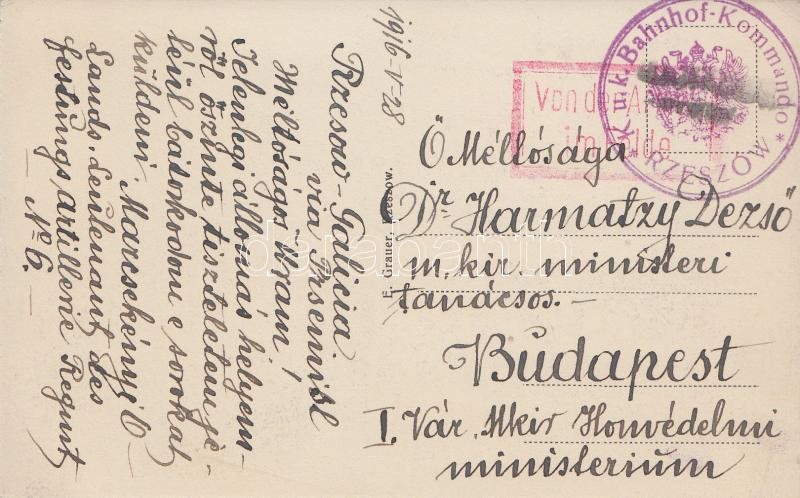 1916-V-28
Rzesow-Galicia.
via Prsemisl
Méltóságos Uram!
Jelenlegi állomás helyem-
ről őszinte tiszteletem je-
léül bátorkodom e sorokat
küldeni. Marcsekényi
Lands. Leutenant des
festungs artillerie Regmt
No 6.
E. Grauer, Rzeszow.
K. u. k. Bahnhof-Kommando
* RZESZÓW *
Von der
im Felde
Ő Méltósága
Dr Harmatzy Dezső
m. kir. ministeri
tanácsos.-
Budapest
I. Vár. Mkir Honvédelmi
ministerium
darabanth